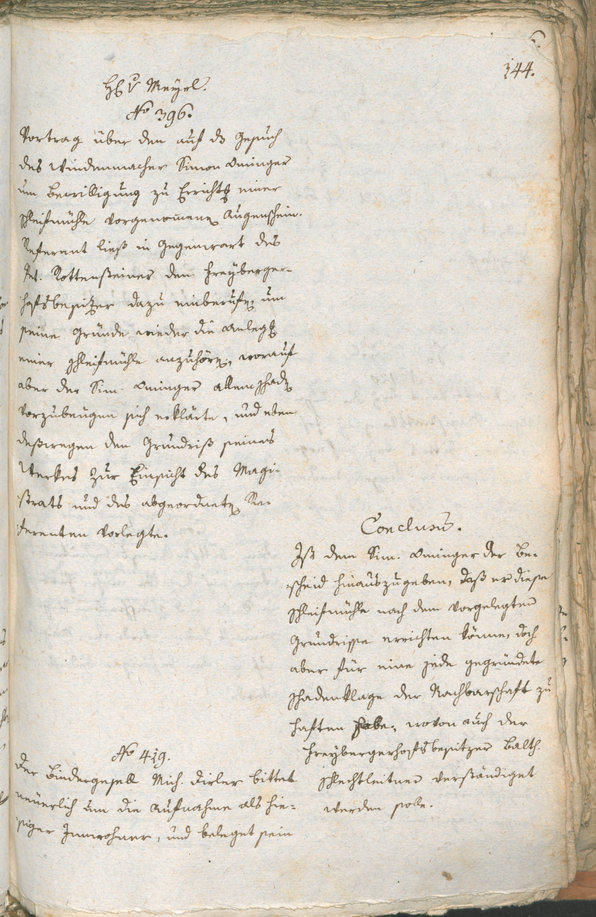 6.
144.
H. v. Meyrl.
No 396.
Vortrag über den auf das Gesuch
des Windenmacher Simon Oninger
um Bewilligung zu Errichtg einer
Schleifmühle vorgenommenen Augenschein.
Referent ließ in Gegenwart des
Rottensteiner den Freyberger-
hofsbesitzer dazu einberufen, um
seine Gründe wieder die Anlegg
einer Schleifmühle anzuhören, worauf
aber der Sim. Oninger allem Schadn
vorzubeugen sich erklärte, und eben
deßwegen den Grundriß seines
Werkes zur Einsicht des Magi-
strats und des abgeordneten Re-
ferenten vorlegte.
Conclusum.
Ist dem Sim. Oninger der Be-
scheid hinauszugeben, daß er diese
Schleifmühle nach dem vorgelegten
Grundrisse errichten könne, doch
aber für eine jede gegründete
Schadenklage der Nachbarschaft zu
haften habe, wovon auch der
Freybergerhofsbesitzer Balth.
Schlechtleitner verständiget
werden solle.
No 419.
Der Bindergesell Mich. Dirler bittet
neuerlich um die Aufnahme als hie-
siger Innwohner, und beleget sein